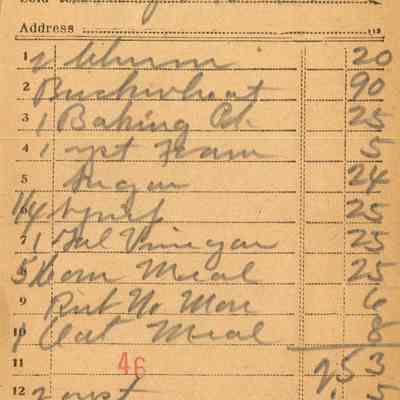 Address
1 2
2 Buckwheat 90
3 1 Baking Pd. 25
4 1 5
5 Sugar 24
6 1/4 25
7 1 Gal Vinegar 25
8 5 Corn Meal 25
9 Rub No More 6
10 1 Oat Meal 8
11 46 2.53
12 2 5